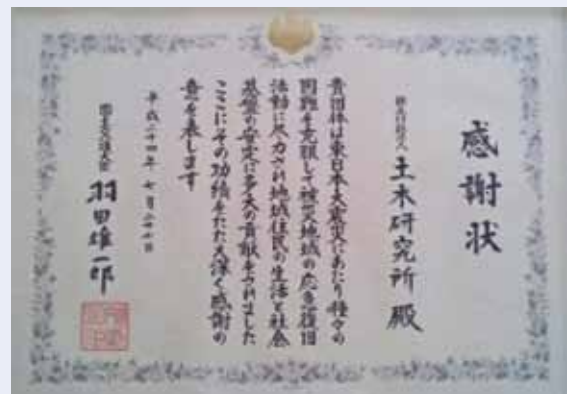 感謝状
独立行政法人 土木研究所 殿
貴団体は東日本大震災にあたり種々の
困難を克服して被災地域の応急復旧
活動に尽力され地域住民の生活と社会
基盤の安定に多大の貢献をされました
ここにその功績をたたえ深く感謝の
意を表します
平成二十四年七月二十七日
国土交通大臣 羽田雄一郎